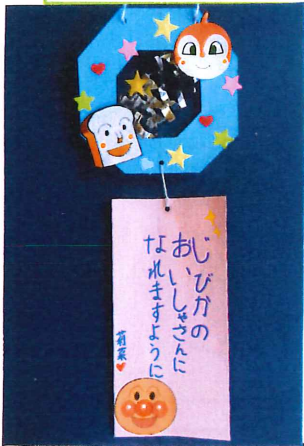 じびかの
おいしゃさんに
なれますように